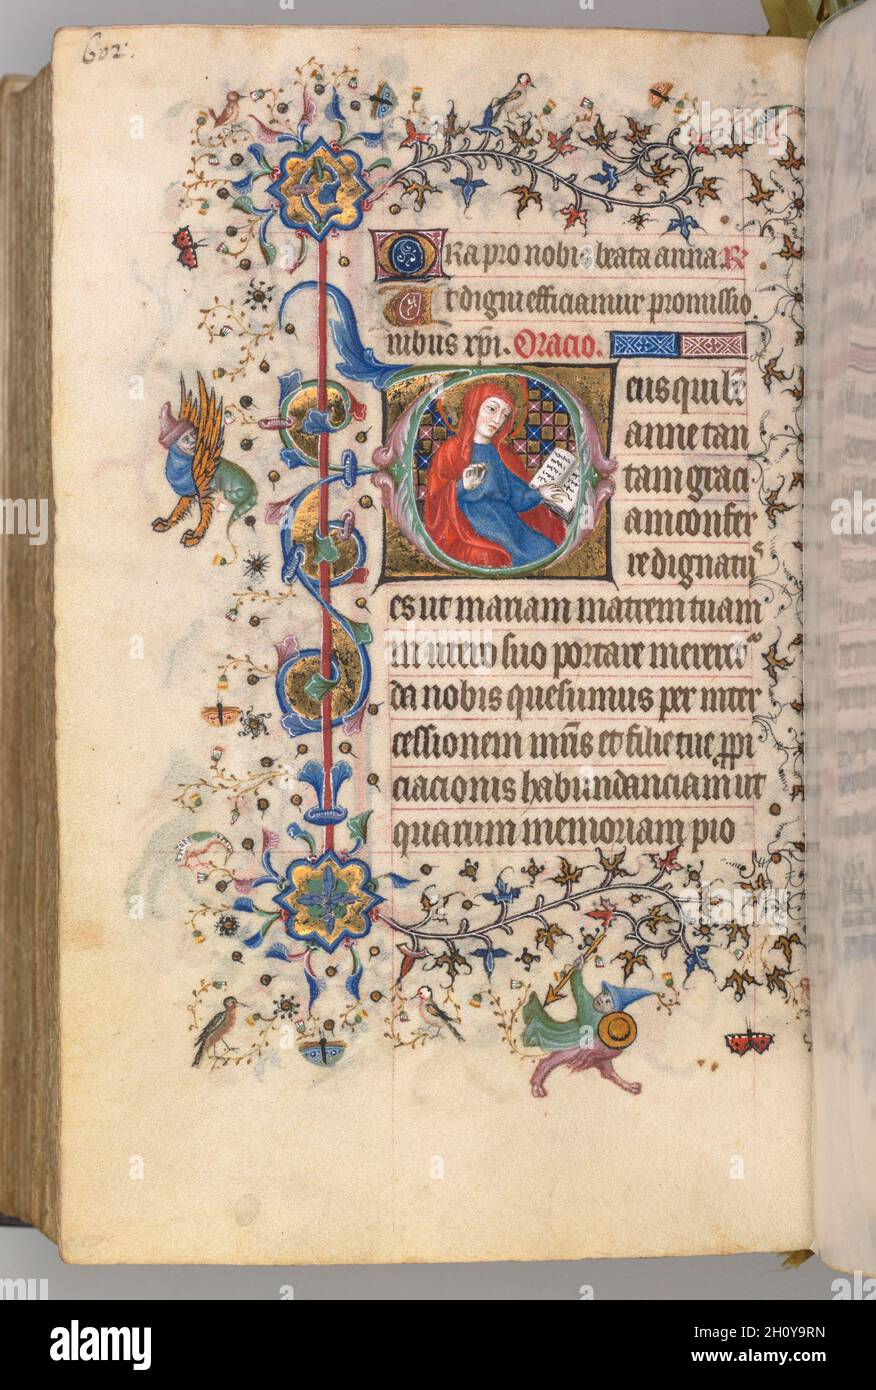 602.
Ora pro nobis beata anna. R
Ut digni efficiamur promissio
nibus xpi. Oracio.
Deus qui bte
anne tan
tam graci
am confer
re dignatus
es ut mariam matrem tuam
in utero suo portare mereret
da nobis quesumus per inter
cessionem mris et filie tue ppi
ciacionis habundanciam ut
quarum memoriam pio
alamy
Image ID: 2H0Y9RN
www.alamy.com